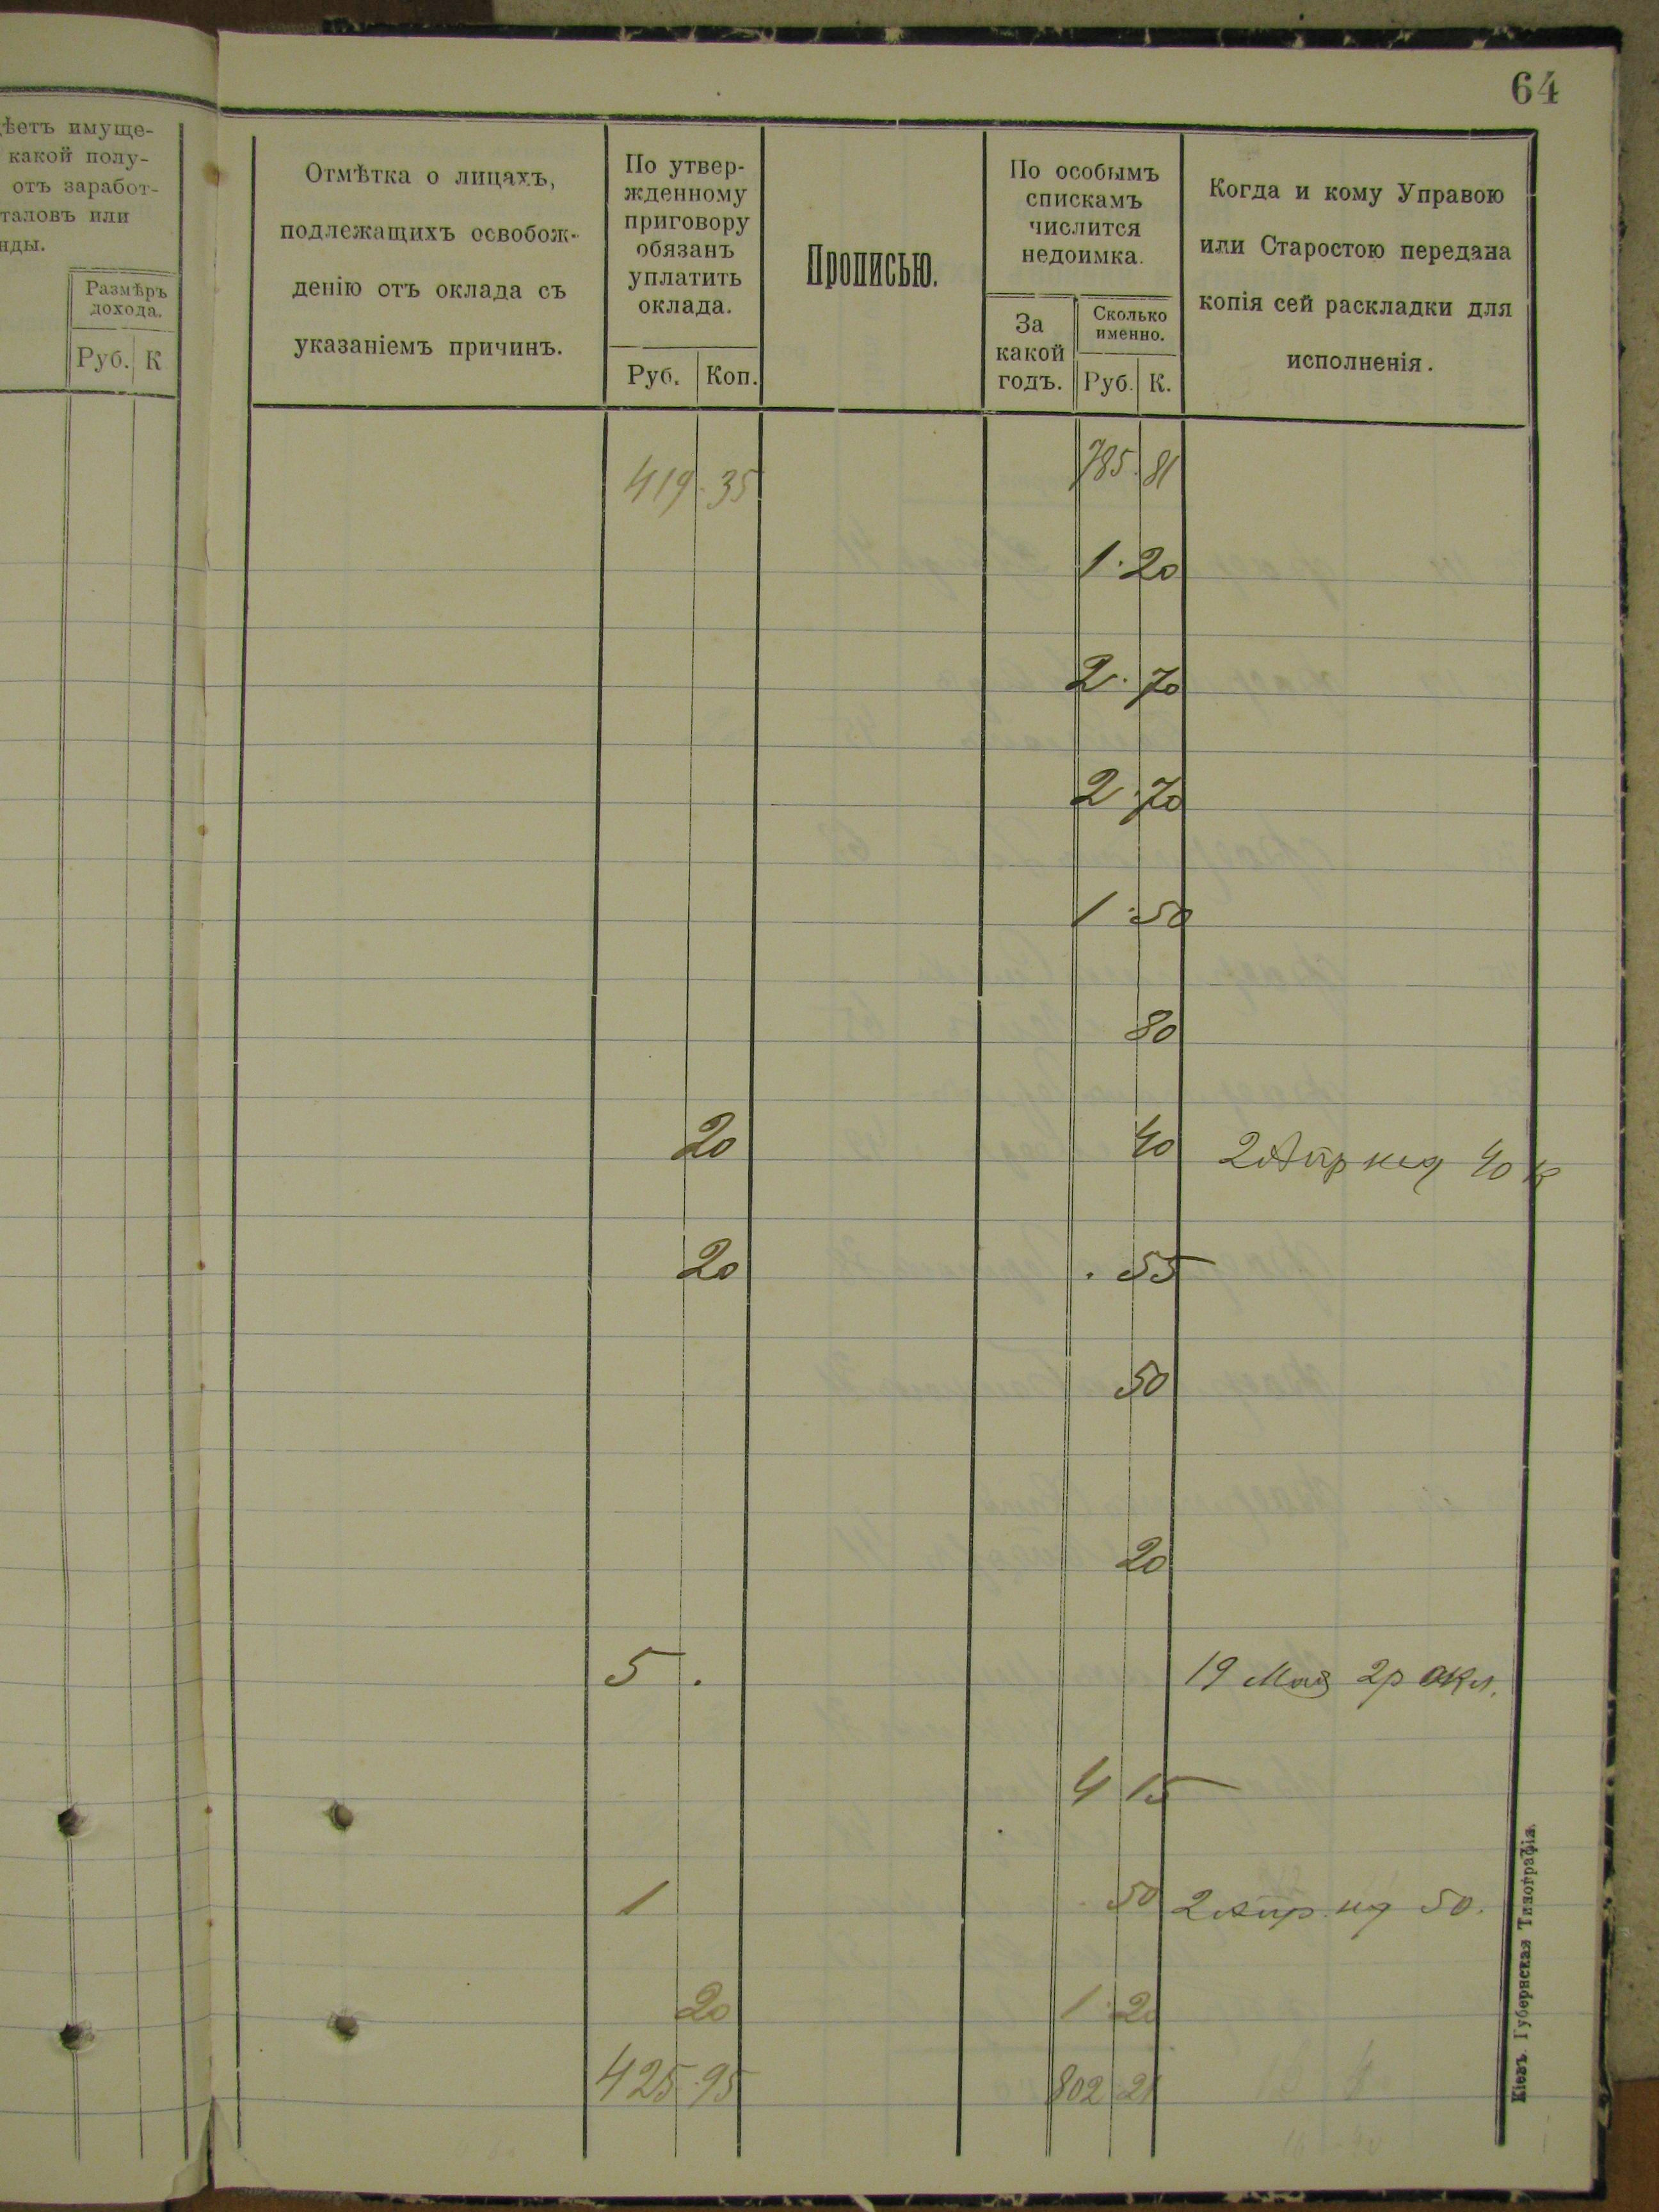 64
ѣетъ имуще-
какой полу-
отъ заработ-
таловъ или
нды.
Размѣръ
дохода.
Руб. К
Отмѣтка о лицахъ,
подлежащихъ освобож-
денію отъ оклада съ
указаніемъ причинъ.
По утвер-
жденному
приговору
обязанъ
уплатить
оклада.
Руб. Коп.
Прописью.
По особымъ
спискамъ
числится
недоимка.
За
какой
годъ.
Сколько
именно.
Руб. К.
Когда и кому Управою
или Старостою передана
копія сей раскладки для
исполненія.
419 . 35 785 . 81
1 . 20
2 . 70
2 . 70
1 . 50
80
20 40 2 Апр 40 к
20 . 55
50
20
5 . 19 Мая 2р окл.
4 15
1 . 50 2 апр. 50.
20 1 . 20
425 . 95 802 21
Кіевъ. Губернская Типографія.